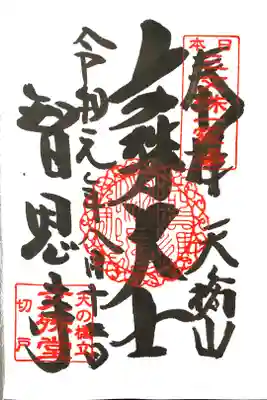 日本
奉拝 天橋山
文殊大士
令和元年八月
智恩寺
天の橋立
文殊堂
切戸